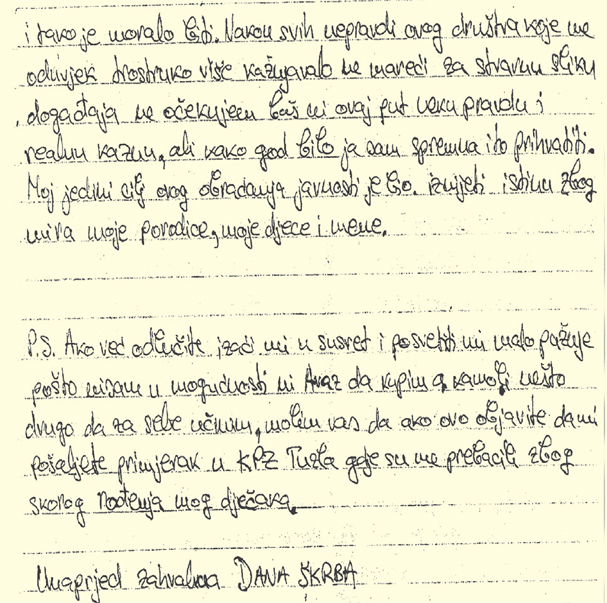 i tako je moralo biti. Nakon svih nepravdi ovog društva koje me
oduvjek trostruko više kažnjavalo ne mareći za stvarnu sliku
događaja ne očekujem baš ni ovaj put neku pravdu i
realnu kaznu, ali kako god bilo ja sam spremna i to prihvatiti.
Moj jedini cilj ovog obraćanja javnosti je bio iznijeti istinu zbog
mira moje porodice, moje djece i mene.
P.S. Ako već odlučite izaći mi u susret i posvetiti mi malo pažnje
pošto nisam u mogućnosti ni Avaz da kupim a kamoli nešto
drugo da za sebe učinim, molim vas da ako ovo objavite da mi
pošaljete primjerak u KPZ Tuzla gdje su me prebacili zbog
skorog rođenja mog dječaka.
Unaprjed zahvalna DANA ŠKRBA